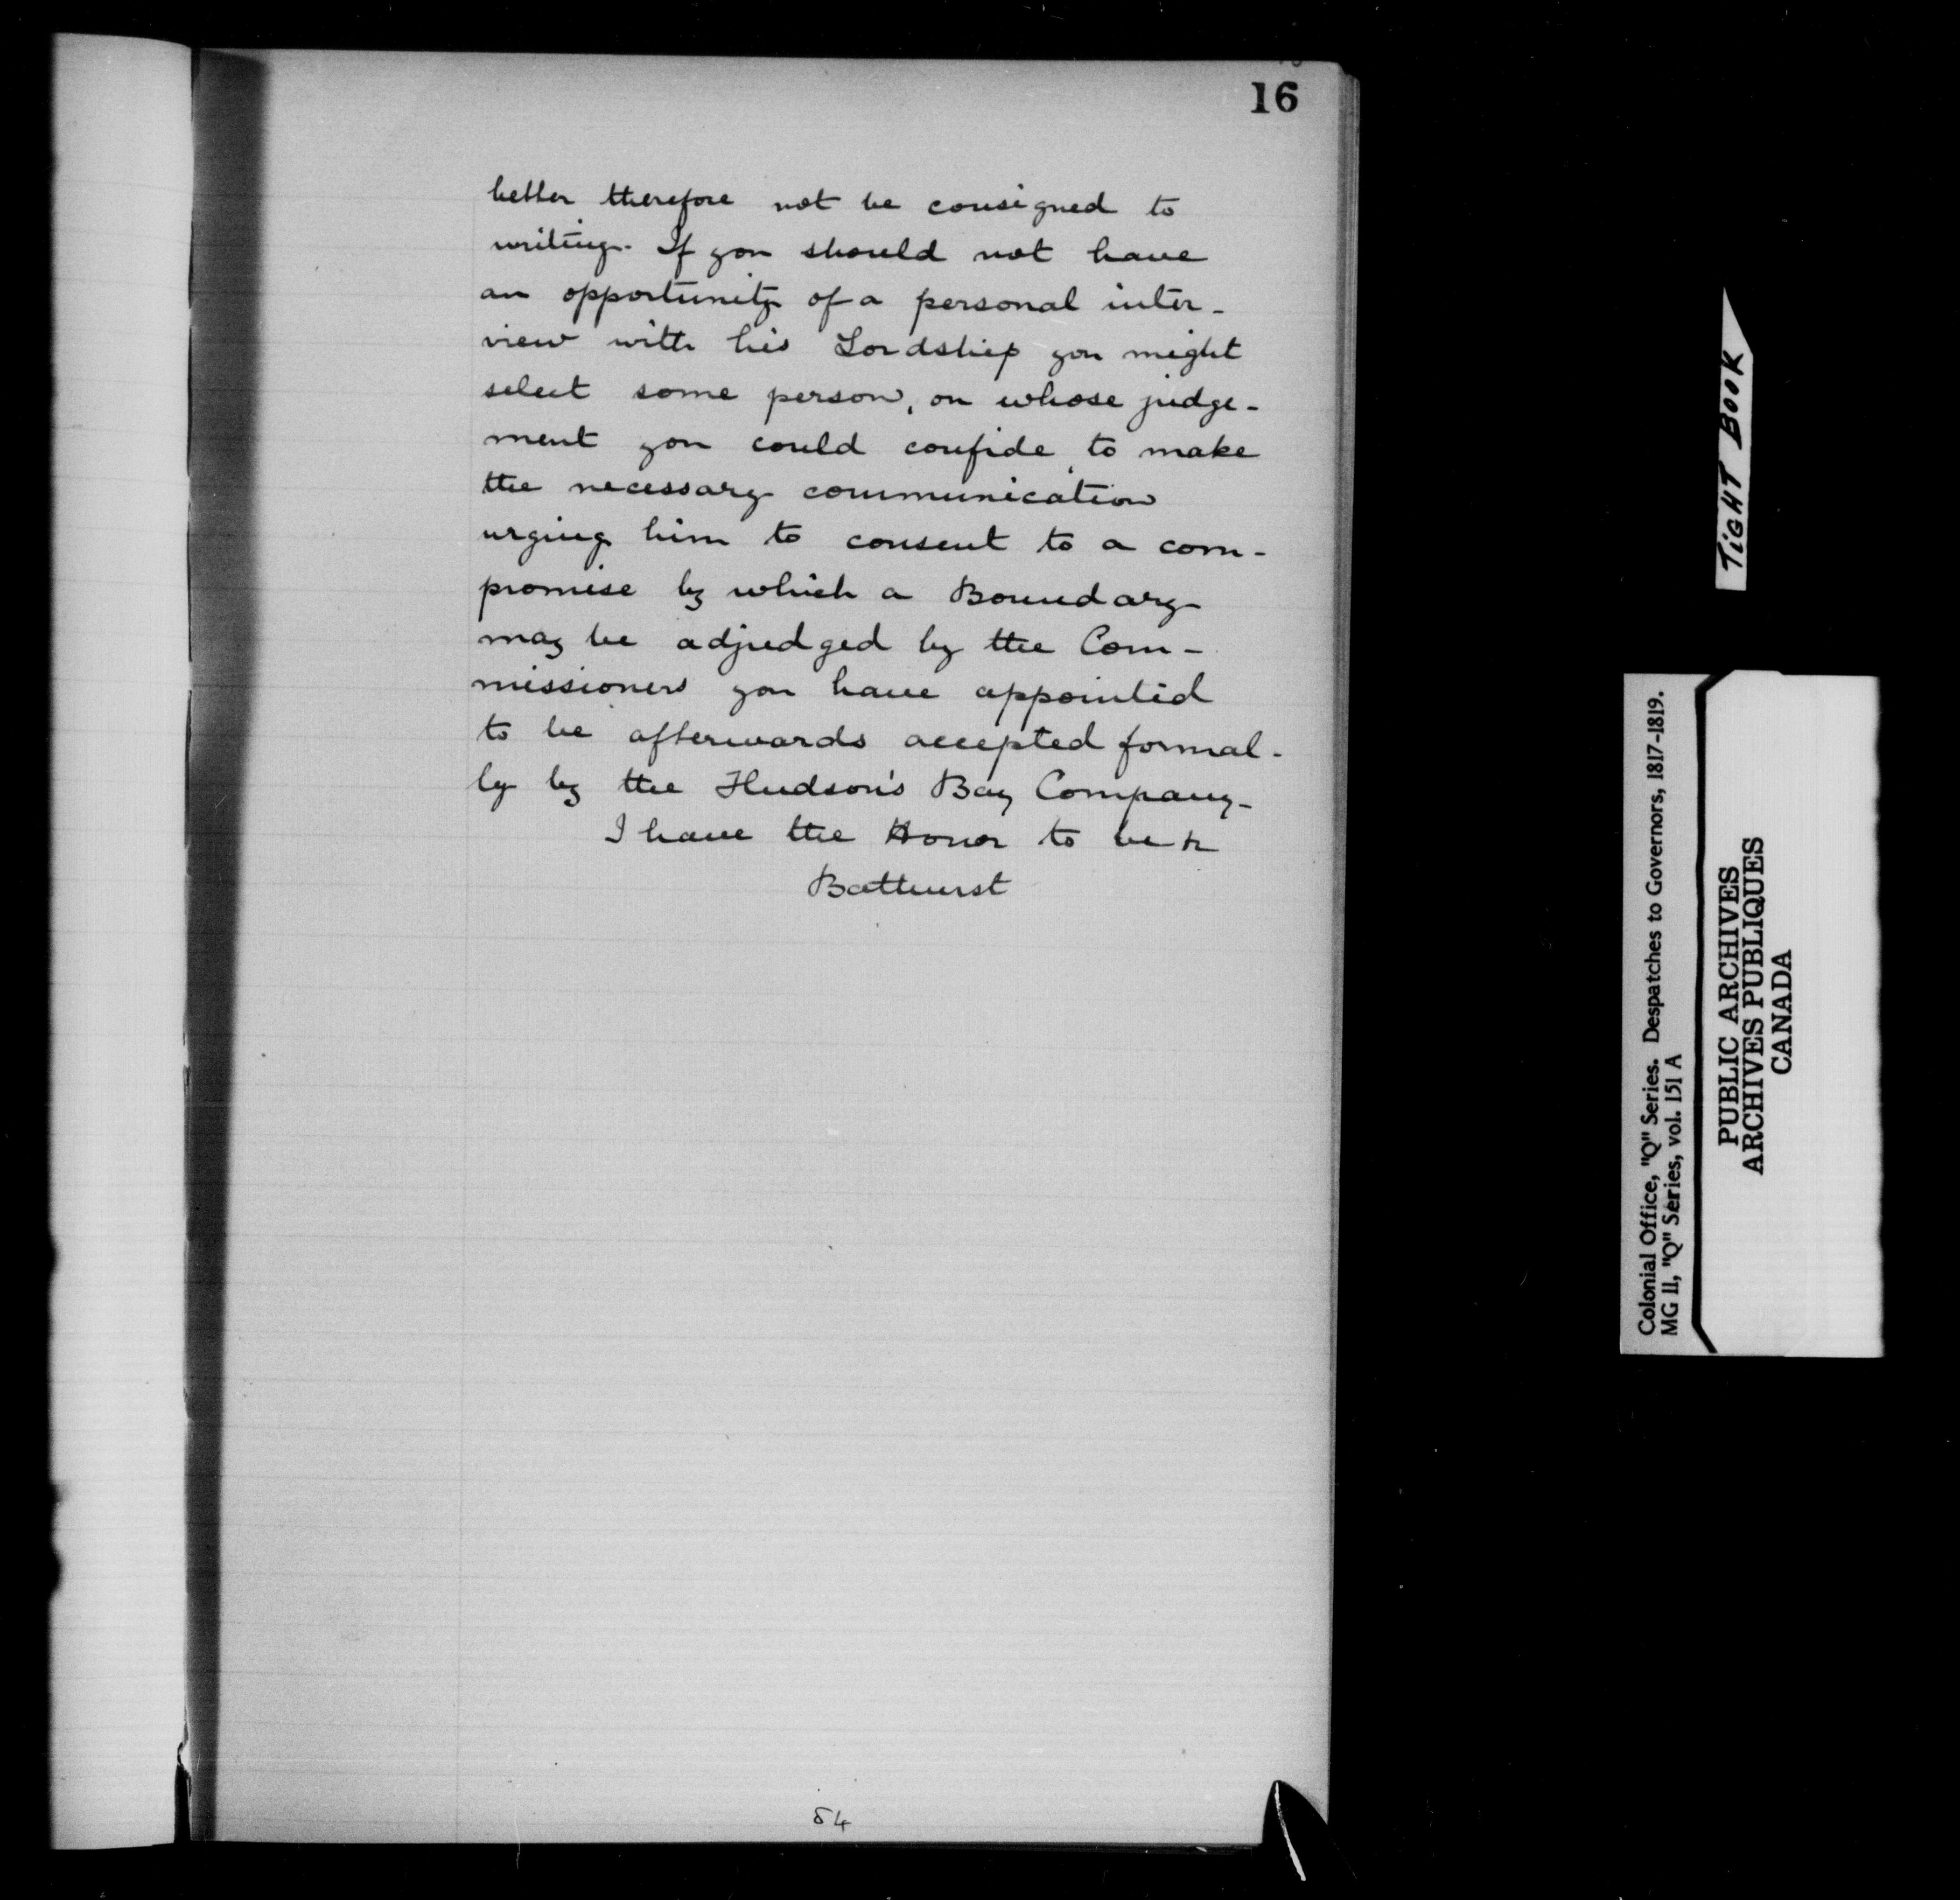 16
better therefore not be consigned to
writing. If you should not have
an opportunity of a personal inter-
view with his Lordship you might
select some person, on whose judge-
ment you could confide, to make
the necessary communication
urging him to consent to a com-
promise by which a Boundary
may be adjudged by the Com-
missioners you have appointed
to be afterwards accepted formal-
ly by the Hudson's Bay Company-
I have the Honor to be &
Bathurst
54
TIGHT BOOK
Colonial Office, "Q" Series. Despatches to Governors, 1817-1819.
MG 11, "Q" Series, vol. 151 A
PUBLIC ARCHIVES
ARCHIVES PUBLIQUES
CANADA